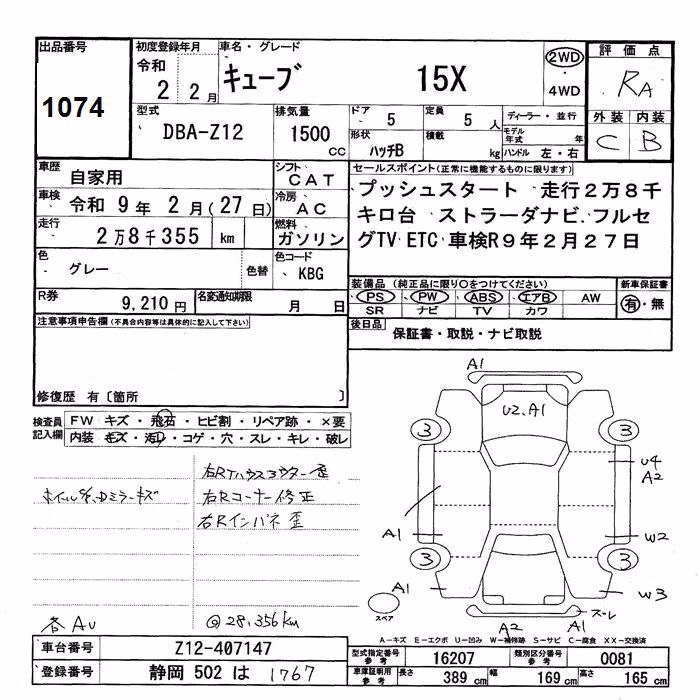 出品番号
1074
初度登録年月
令和
2 2月
車名・グレード
キューブ 15X
2WD
・
4WD
評価点
RA
外装 内装
C B
型式
DBA-Z12
排気量
1500 cc
ドア
5
定員
5 人
形状
ハッチB
積載
kg
ディーラー・並行
モデル年式 年
ハンドル 左・右
車歴
自家用
シフト
CAT
車検
令和 9年 2月(27日)
冷房
AC
走行
2万8千355 km
燃料
ガソリン
色
グレー
色替
色コード
KBG
R券
9,210円
名変通知期限
月 日
セールスポイント(正常に機能するものに限ります)
プッシュスタート 走行2万8千
キロ台 ストラーダナビ.フルセ
グTV ETC 車検R9年2月27日
装備品 (純正品に限り○をつけてください)
PS PW ABS エアB AW
SR ナビ TV カワ
新車保証書
有・無
後日品
保証書・取説・ナビ取説
注意事項申告欄(不具合内容等は具体的に記入して下さい)
修復歴 有〔箇所 〕
検査員
記入欄
FW キズ・飛石・ヒビ割・リペア跡・×要
内装 キズ・汚レ・コゲ・穴・スレ・キレ・破レ
右Rコーナー修正
右Rインパネ歪
各AU
@28,356km
A1
U2.A1
3
3
U4
A2
A1
W2
3
3
A1
W3
スペア
A2
A1
スレ
A-キズ E-エクボ U-凹み W-補修跡 S-サビ C-腐食 XX-交換済
車台番号
Z12-407147
登録番号
静岡 502 は 1767
型式指定番号
参考
16207
類別区分番号
参考
0081
車庫証明用
参考
長さ
389 cm
幅
169 cm
高さ
165 cm